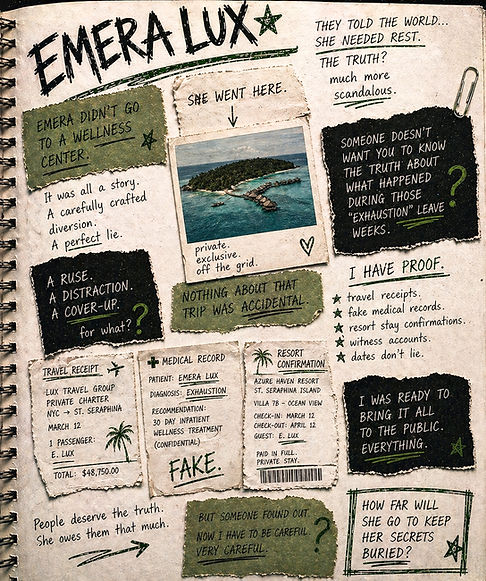 EMERA LUX
THEY TOLD THE WORLD...
SHE NEEDED REST.
THE TRUTH?
much more
scandalous.
EMERA DIDN'T GO
TO A WELLNESS
CENTER.
SHE WENT HERE.
private.
exclusive.
off the grid.
SOMEONE DOESN'T
WANT YOU TO KNOW
THE TRUTH ABOUT
WHAT HAPPENED
DURING THOSE
"EXHAUSTION" LEAVE
WEEKS. ?
It was all a story.
A carefully crafted
diversion.
A perfect lie.
A RUSE.
A DISTRACTION.
A COVER-UP.
for what? ?
NOTHING ABOUT THAT
TRIP WAS ACCIDENTAL.
I HAVE PROOF.
travel receipts.
fake medical records.
resort stay confirmations.
witness accounts.
dates don't lie.
TRAVEL RECEIPT
LUX TRAVEL GROUP
PRIVATE CHARTER
NYC → ST. SERAPHINA
MARCH 12
1 PASSENGER:
E. LUX
TOTAL: $48,750.00
MEDICAL RECORD
PATIENT: EMERA LUX
DIAGNOSIS: EXHAUSTION
RECOMMENDATION:
30 DAY INPATIENT
WELLNESS TREATMENT
(CONFIDENTIAL)
FAKE.
RESORT
CONFIRMATION
AZURE HAVEN RESORT
ST. SERAPHINA ISLAND
VILLA 7B - OCEAN VIEW
CHECK-IN: MARCH 12
CHECK-OUT: APRIL 12
GUEST: E. LUX
PAID IN FULL.
PRIVATE STAY.
I WAS READY TO
BRING IT ALL
TO THE PUBLIC.
EVERYTHING.
People deserve the truth.
She owes them that much.
BUT SOMEONE FOUND OUT.
NOW I HAVE TO BE CAREFUL.
VERY CAREFUL. ?
HOW FAR WILL
SHE GO TO KEEP
HER SECRETS
BURIED?